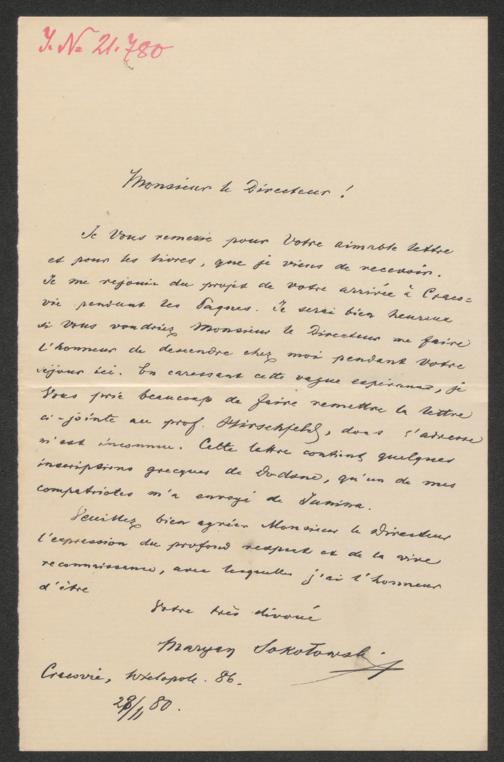 J. № 21.780
Monsieur le Directeur !
Je Vous remercie pour Votre aimable lettre
et pour les livres, que je viens de recevoir.
Je me rejouie du projet de votre arrivée à Craco=
vie pendant les Pâques. Je serai bien heureux
si Vous voudriez Monsieur le Directeur me faire
l'honneur de descendre chez moi pendant Votre
séjour ici. En caressant cette vague espérance, je
Vous prie beaucoup de faire remettre la lettre
ci-jointe au prof. Hirschfeld, dont l'adresse
m'est inconnue. Cette lettre contient quelques
inscriptions grecques de Dodone, qu'un de mes
compatriotes m'a envoyé de Janina.
Veuillez bien agréer Monsieur le Directeur
l'expression du profond respect et de la vive
reconnaissance, avec lesquelles j'ai l'honneur
d'être
Votre très dévoué
Maryan Sokołowski
Cracovie, Wielopole. 86.
/II 80.